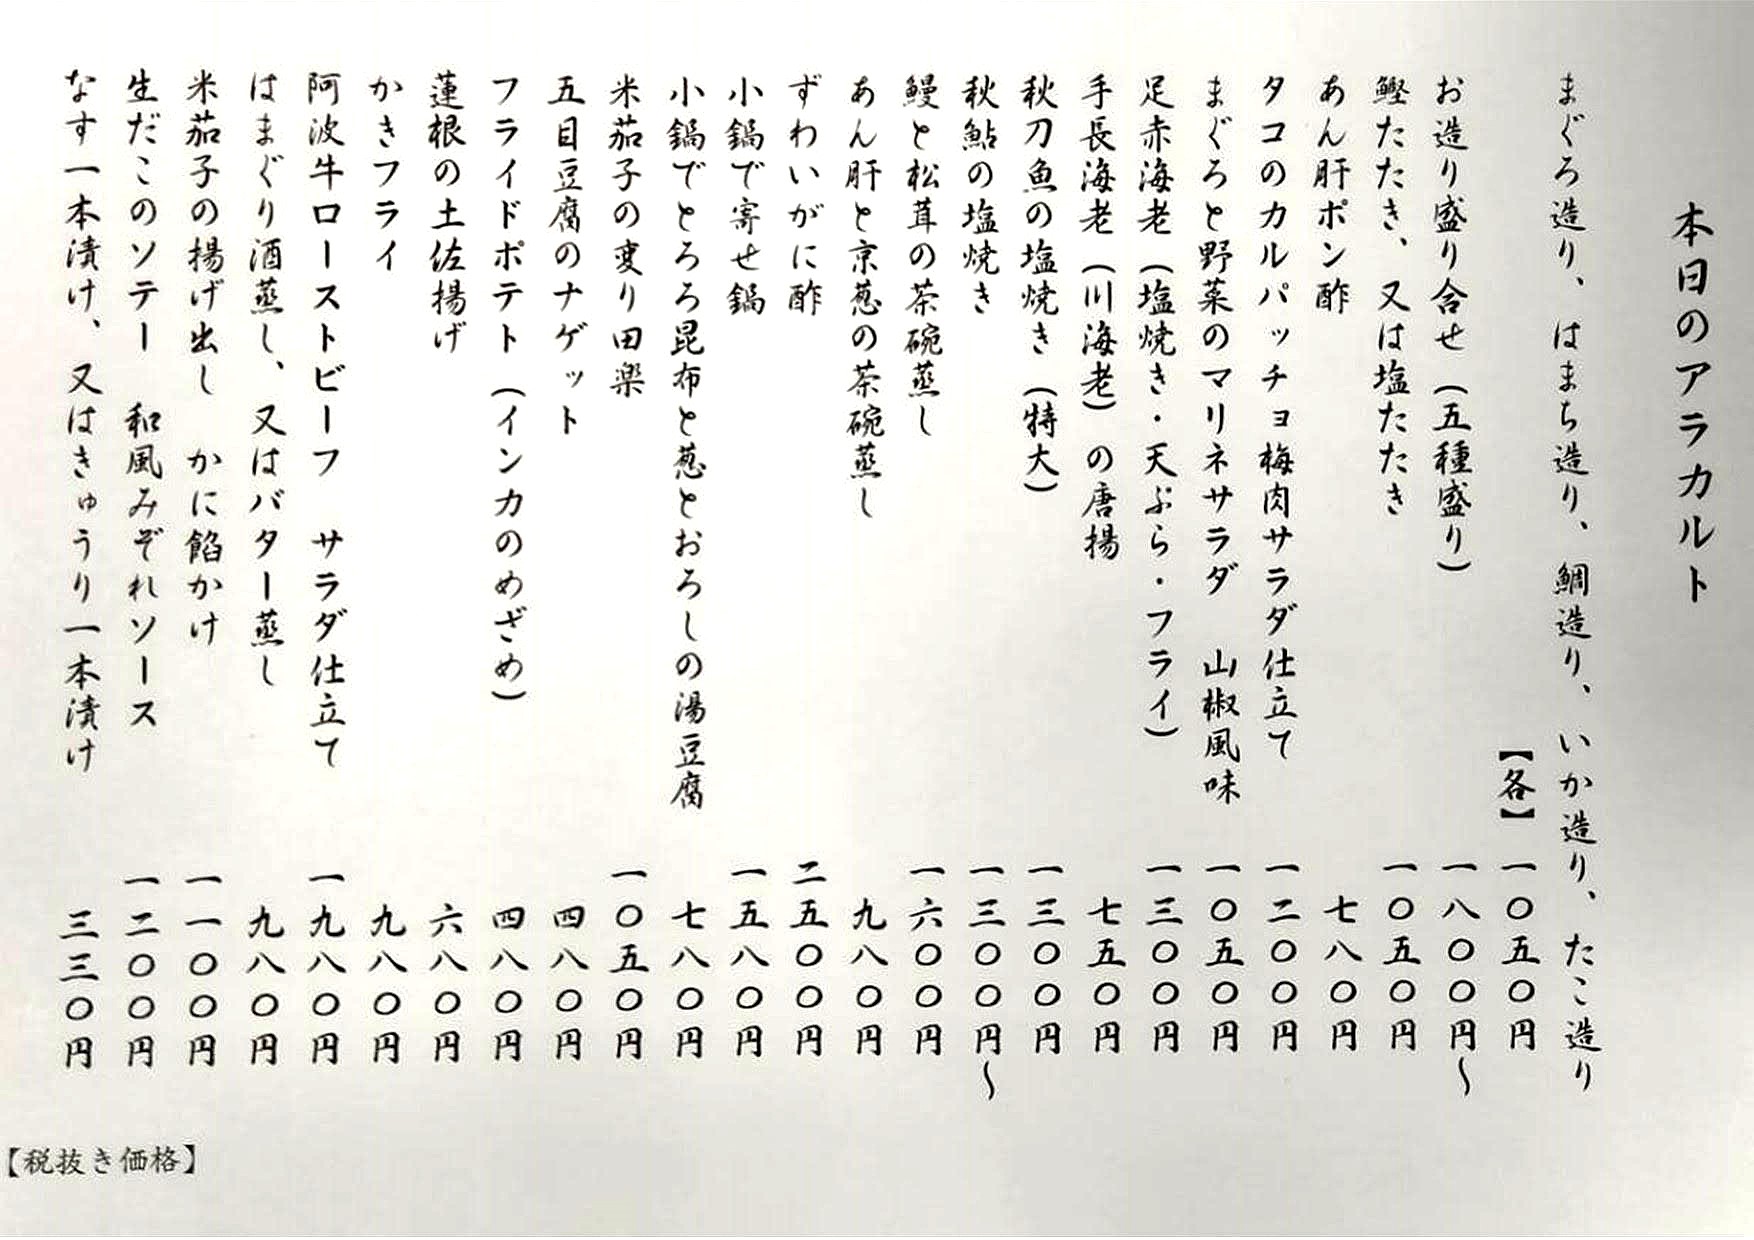 本日のアラカルト
まぐろ造り、はまち造り、鯛造り、いか造り、たこ造り
【各】一〇五〇円
お造り盛り合せ（五種盛り） 一八〇〇円～
鰹たたき、又は塩たたき 一〇五〇円
あん肝ポン酢 七八〇円
タコのカルパッチョ梅肉サラダ仕立て 一二〇〇円
まぐろと野菜のマリネサラダ 山椒風味 一〇五〇円
足赤海老（塩焼き・天ぷら・フライ） 一三〇〇円
手長海老（川海老）の唐揚 七五〇円
秋刀魚の塩焼き（特大） 一三〇〇円
秋鮎の塩焼き 一三〇〇円～
鰻と松茸の茶碗蒸し 一六〇〇円
あん肝と京葱の茶碗蒸し 九八〇円
ずわいがに酢 二五〇〇円
小鍋で寄せ鍋 一五八〇円
小鍋でとろろ昆布と葱とおろしの湯豆腐 七八〇円
米茄子の変り田楽 一〇五〇円
五目豆腐のナゲット 四八〇円
フライドポテト（インカのめざめ） 四八〇円
蓮根の土佐揚げ 六八〇円
かきフライ 九八〇円
阿波牛ローストビーフ サラダ仕立て 一九八〇円
はまぐり酒蒸し、又はバター蒸し 九八〇円
米茄子の揚げ出し かに餡かけ 一一〇〇円
生だこのソテー 和風みぞれソース 一二〇〇円
なす一本漬け、又はきゅうり一本漬け 三三〇円
【税抜き価格】